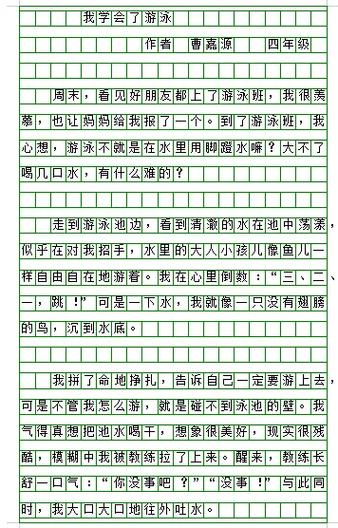 我学会了游泳
作者 曹嘉源 四年级
周末，看见好朋友都上了游泳班，我很羡
慕，也让妈妈给我报了一个。到了游泳班，我
心想，游泳不就是在水里用脚蹬水嘛？大不了
喝几口水，有什么难的？
走到游泳池边，看到清澈的水在池中荡漾，
似乎在对我招手，水里的大人小孩儿像鱼儿一
样自由自在地游着。我在心里倒数：“三、二、
一，跳！”可是一下水，我就像一只没有翅膀
的鸟，沉到水底。
我拼了命地挣扎，告诉自己一定要游上去，
可是不管我怎么游，就是碰不到泳池的壁。我
气得真想把池水喝干，想象很美好，现实很残
酷，模糊中我被教练拉了上来。醒来，教练长
舒一口气：“你没事吧？”“没事！”与此同
时，我大口大口地往外吐水。